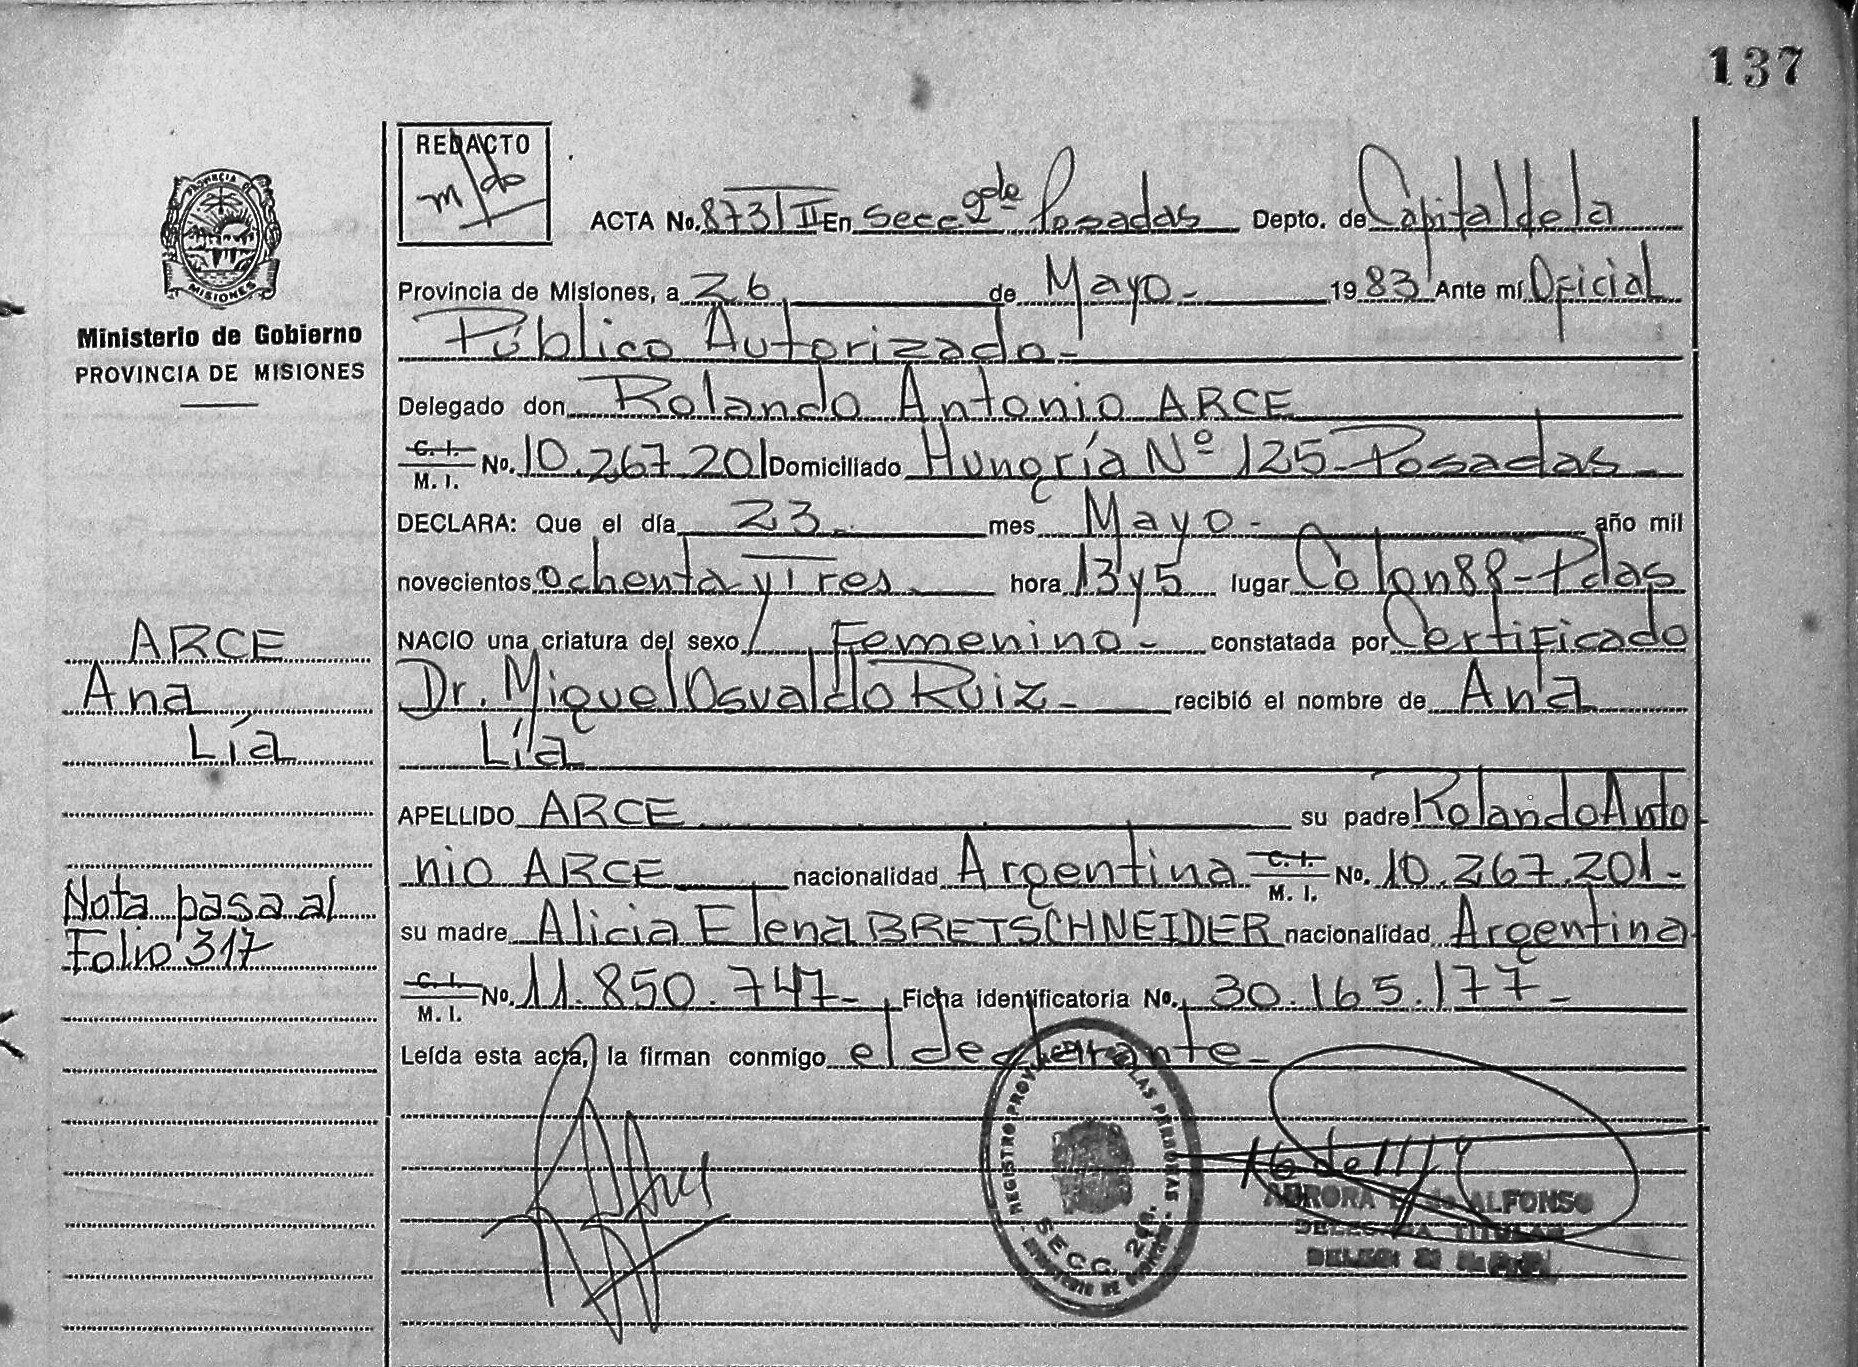 137
REDACTO
m/do
ACTA No. 873/II En Secc. 2da Posadas Depto. de Capital de la
PROVINCIA DE
MISIONES
Provincia de Misiones, a 26 de Mayo - 1983 Ante mí Oficial
Ministerio de Gobierno
Público Autorizado -
PROVINCIA DE MISIONES
Delegado don Rolando Antonio ARCE
C. I.
M. I. No. 10.267.201 Domiciliado Hungría Nº 125 - Posadas -
DECLARA: Que el día 23 - mes Mayo - año mil
novecientos ochenta y Tres hora 13 y 5 lugar Colon 88 - Pdas
ARCE
NACIO una criatura del sexo Femenino - constatada por Certificado
Ana
Dr. Miguel Osvaldo Ruiz - recibió el nombre de Ana
Lía
Lía
APELLIDO ARCE su padre Rolando Anto
nio ARCE nacionalidad Argentina C. I.
M. I. No. 10.267.201 -
Nota pasa al
su madre Alicia Elena BRETSCHNEIDER nacionalidad Argentina
Folio 317
C. I.
M. I. No. 11.850.747 - Ficha identificatoria No. 30.165.177 -
Leída esta acta, la firman conmigo el declarante -
REGISTRO PROVINCIAL DE LAS PERSONAS
SECC. 2da.
MINISTERIO DE GOBIERNO
AURORA de ALFONSO
DELEGADA TITULAR